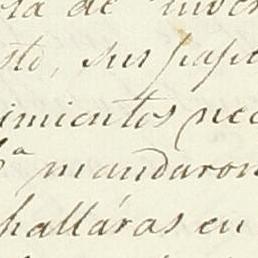 de inver
sus pape
imientos nec
mandaron
halláras en